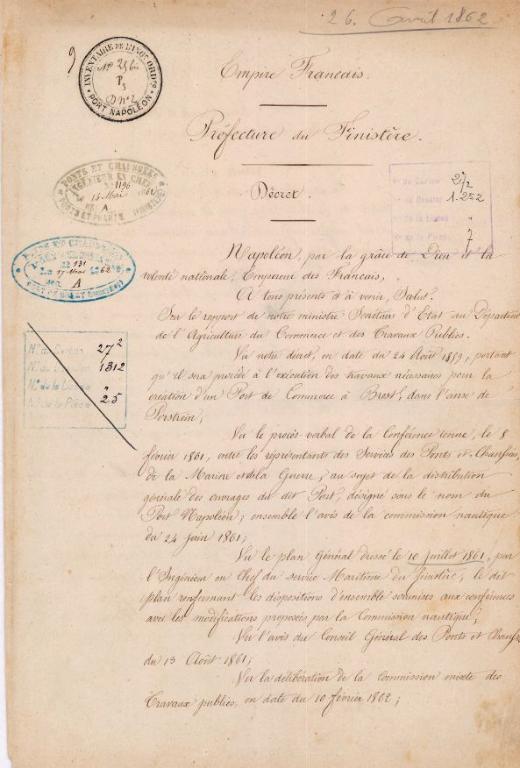 26. Avril 1862
9
INVENTAIRE DE L'ING. ORD.
N° 256
P3
D N° 2
PORT NAPOLÉON
Empire Français.
Préfecture du Finistère.
Décret.
PONTS ET CHAUSSÉES
INGÉNIEUR EN CHEF
1196
15 Mai
A
PONTS ET CHAUSSÉES
131
17 Mai 62
A
27/2
1.222
"
7
N° du Carton 27 2
1312
N° de la Liasse "
N° de la Pièce 25
Napoléon, par la grâce de Dieu et la
volonté nationale, Empereur des Français,
A tous présents et à venir, Salut.
Sur le rapport de notre ministre Secrétaire d'Etat au Département
de l'Agriculture du Commerce et des Travaux Publics.
Vu notre décret, en date du 24 Août 1859, portant
qu'il sera procédé à l'exécution des travaux nécessaires pour la
création d'un Port de Commerce à Brest, dans l'anse de
Porstrein;
Vu le procès-verbal de la Conférence tenue, le 8
février 1861, entre les représentants des Services des Ponts-et-Chaussées,
de la Marine et de la Guerre, au sujet de la distribution
générale des ouvrages du dit Port, désigné sous le nom du
Port Napoléon; ensemble l'avis de la commission nautique
du 24 juin 1861;
Vu le plan Général dressé le 10 Juillet 1861, par
l'Ingénieur en Chef du service Maritime du Finistère, le dit
plan renfermant les dispositions d'ensemble soumises aux conférences
avec les modifications proposées par la Commission nautique;
Vu l'avis du Conseil Général des Ponts et Chaussées
du 13 Août 1861;
Vu la délibération de la commission mixte des
Travaux publics, en date du 10 février 1862;